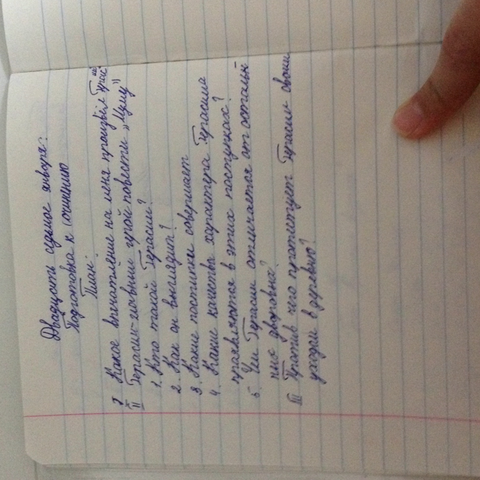 Двадцать седьмое января:
Подготовка к сочинению
План:
I Какое впечатление на меня произвёл Герас
II Герасим-главный герой повести "Муму"
1. Кто такой Герасим?
2. Как он выглядит?
3. Какие поступки совершает
4. Какие качества характера Герасима
проявляются в этих поступках?
5. Чем Герасим отличается от осталь
ных дворовых?
III Против чего протестует Герасим своим
уходом в деревню?